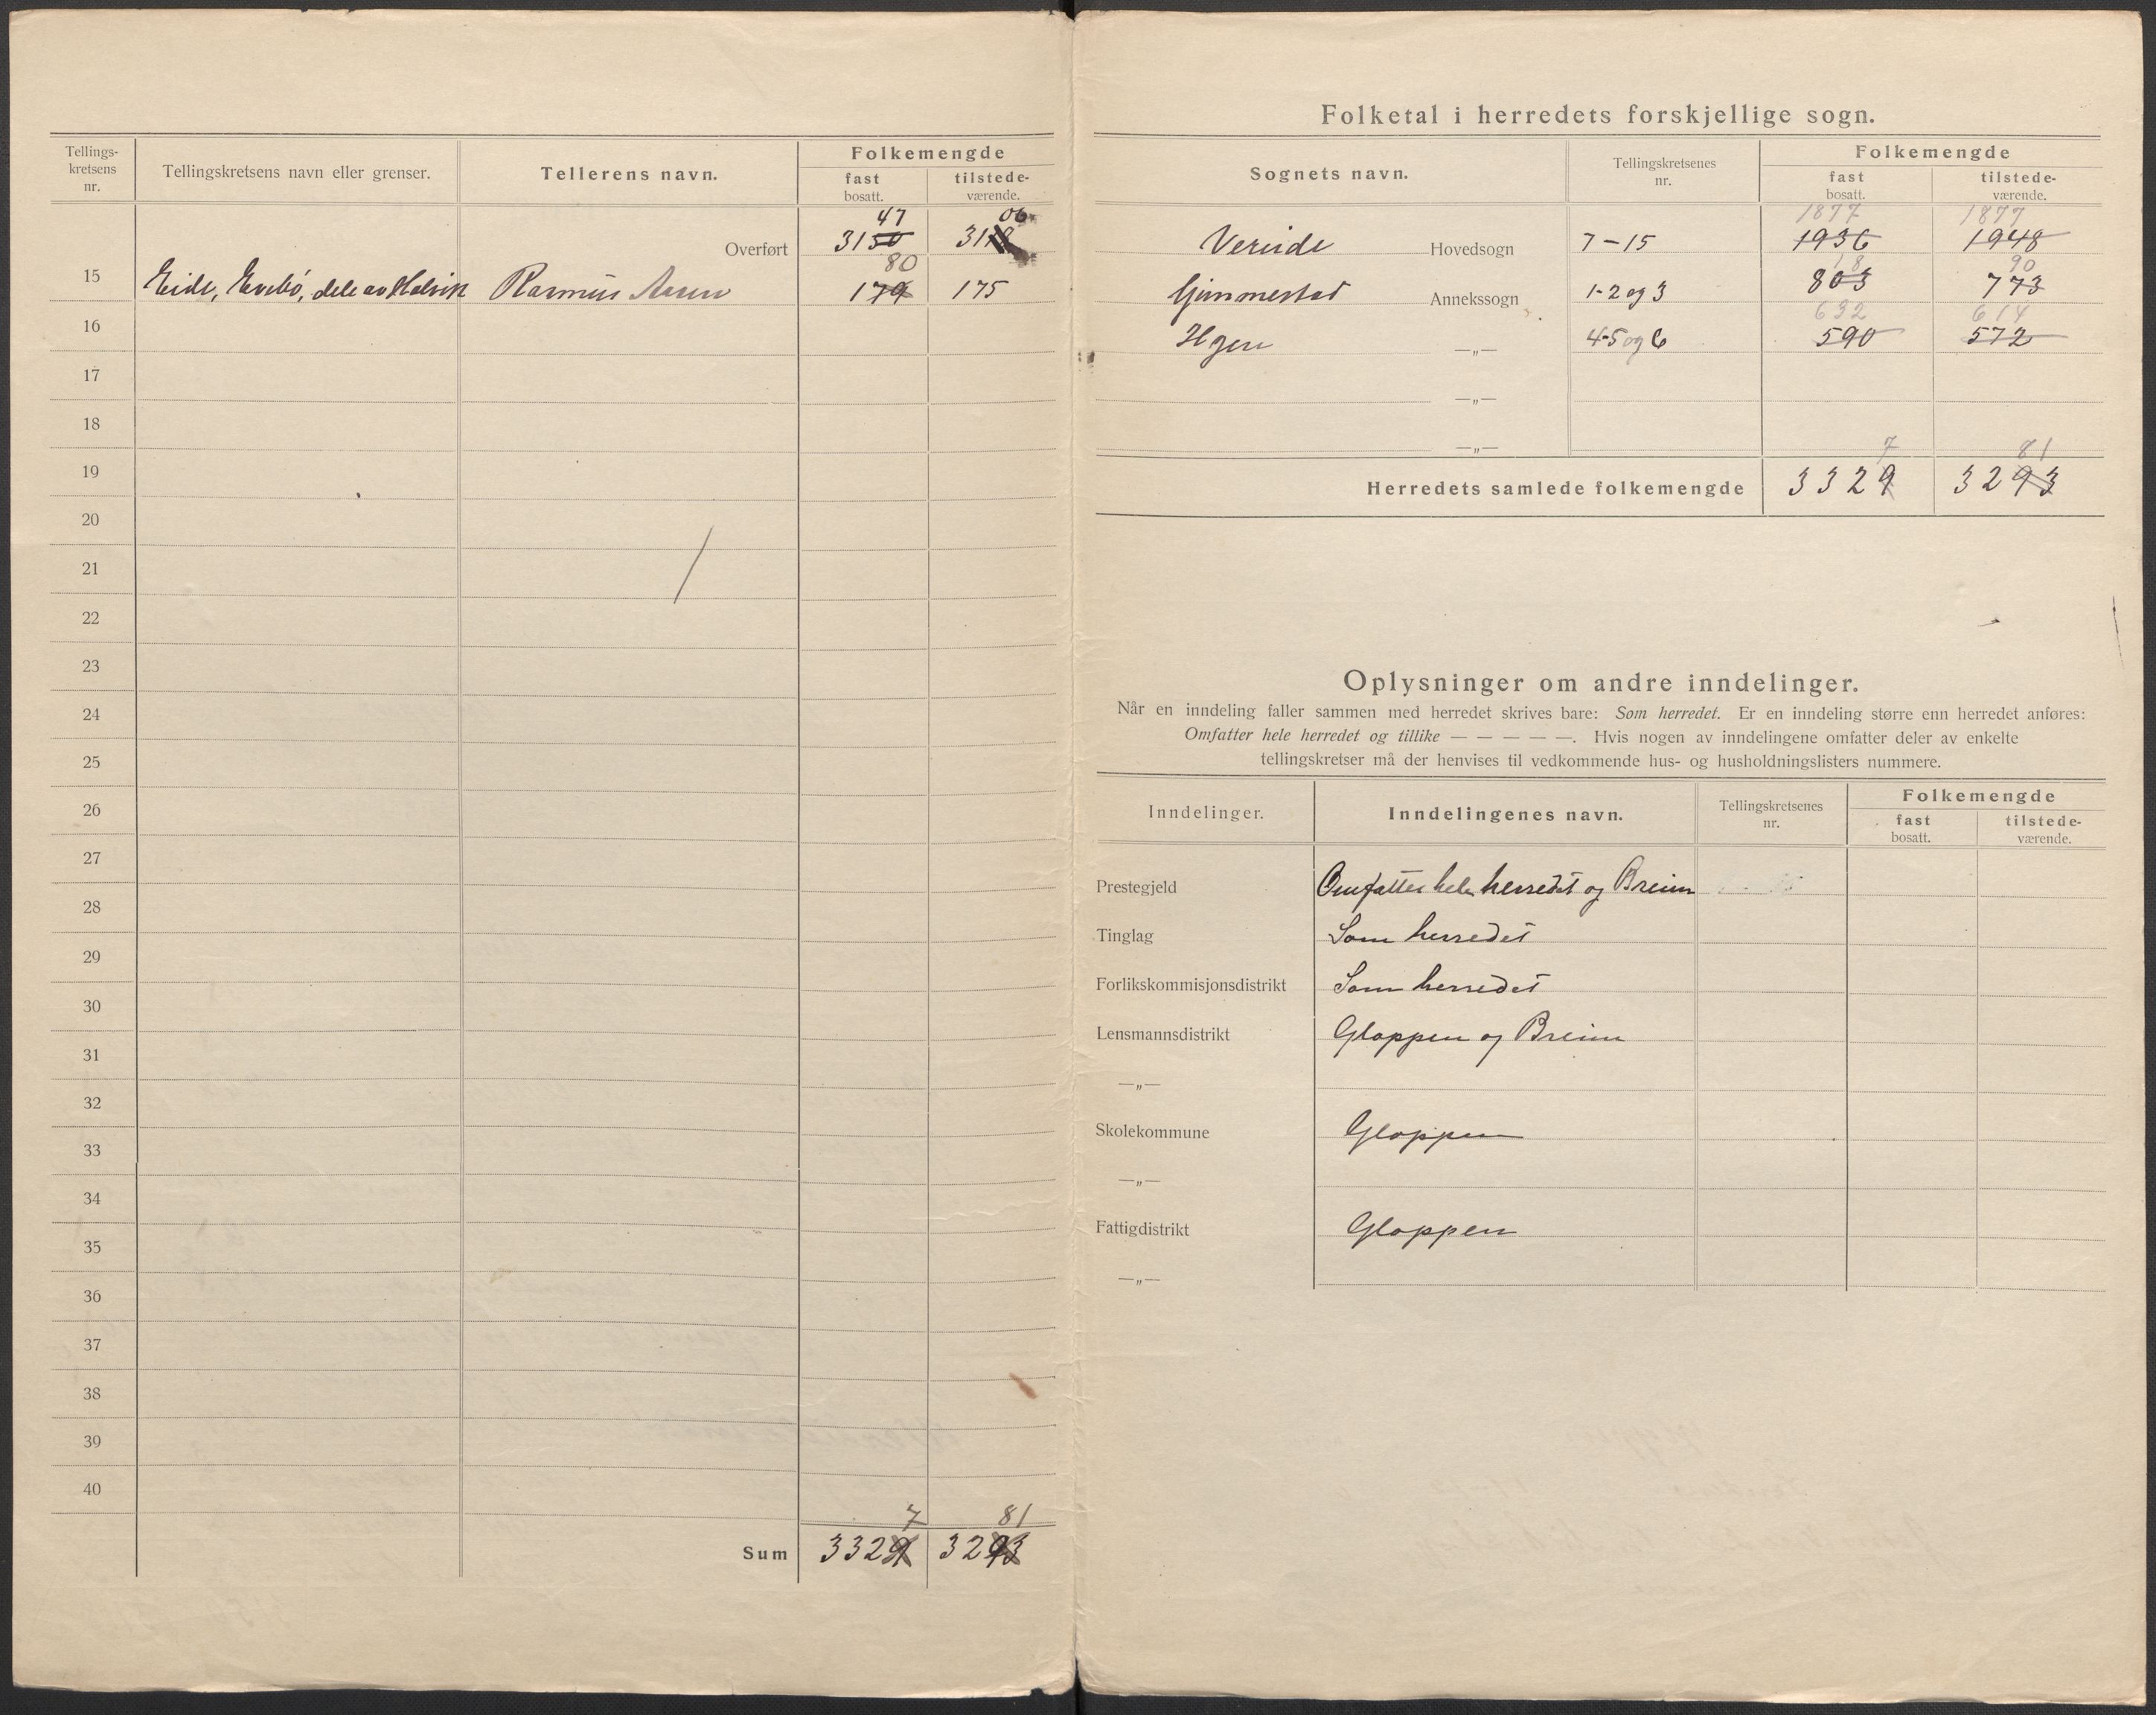 Tellings-
kretsens
nr.
Tellingskretsens navn eller grenser.
Tellerens navn.
Folkemengde
fast
bosatt.
tilstede-
værende.
47 06
Overført 3150 31
80
15 Eide, Evebø, dele av Hølvik Rasmus Aasen 179 175
16
17
18
19
20
21
22
23
24
25
26
27
28
29
30
31
32
33
34
35
36
37
38
39
40
7 81
Sum 3329 3293
Folketal i herredets forskjellige sogn.
Sognets navn.
Tellingskretsenes
nr.
Folkemengde
fast
bosatt.
tilstede-
værende.
1877 1877
Vereide Hovedsogn 7-15 1936 1948
18 90
Gimmestad Annekssogn 1-2 og 3 803 773
632 614
Hyen —„— 4-5 og 6 590 572
—„—
—„—
7 81
Herredets samlede folkemengde 3329 3293
Oplysninger om andre inndelinger.
Når en inndeling faller sammen med herredet skrives bare: Som herredet. Er en inndeling større enn herredet anføres:
Omfatter hele herredet og tillike — — — — —. Hvis nogen av inndelingene omfatter deler av enkelte
tellingskretser må der henvises til vedkommende hus- og husholdningslisters nummere.
Inndelinger.
Inndelingenes navn.
Tellingskretsenes
nr.
Folkemengde
fast
bosatt.
tilstede-
værende.
Prestegjeld Omfatter hele herredet og Breim
Tinglag Som herredet
Forlikskommisjonsdistrikt Som herredet
Lensmannsdistrikt Gloppen og Breim
—„—
Skolekommune Gloppen
—„—
Fattigdistrikt Gloppen
—„—